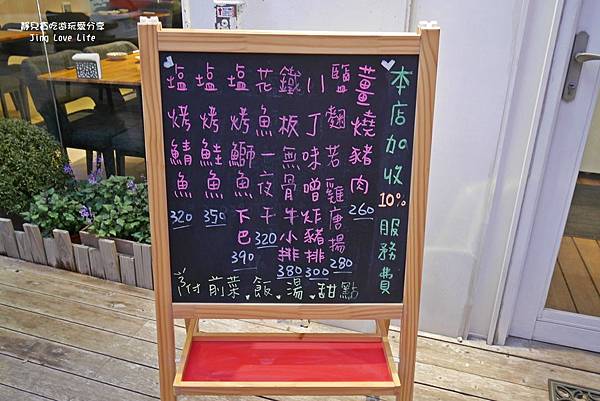 靜兒吃吃玩愛分享
Jing Love Life
本店加收10%服務費
薑燒豬肉 260
鹽麴若雞唐揚 280
八丁味噌炸豬排 300
鐵板無骨牛小排 380
花魚一夜干 320
塩烤鰤魚下巴 390
塩烤鮭魚 350
塩烤鯖魚 320
附前菜、飯、湯、甜點